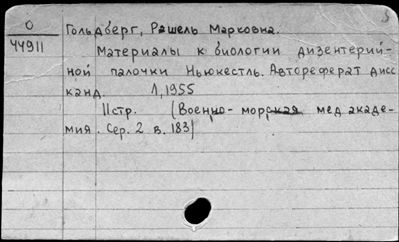 О
44911
Гольдберг, Рашель Марковна.
Материалы к биологии дизентерий-
ной палочки Ньюкестль. Автореферат дисс
канд. Л, 1955
11стр. (Военно-морская мед акаде-
мия. Сер. 2 в. 183)